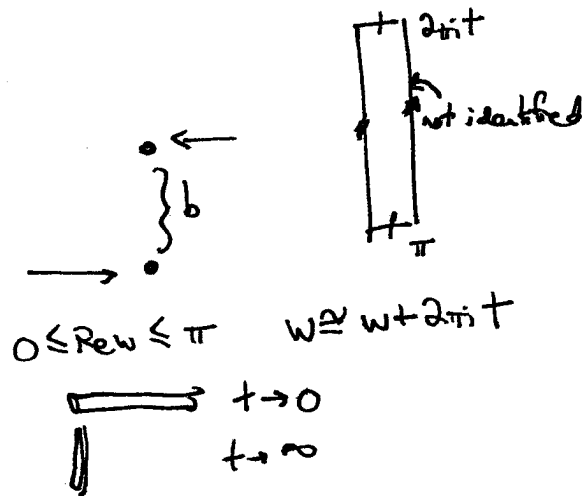 2πit
not identified
b
π
0 ≤ Re w ≤ π w ≅ w + 2πit
t → 0
t → ∞